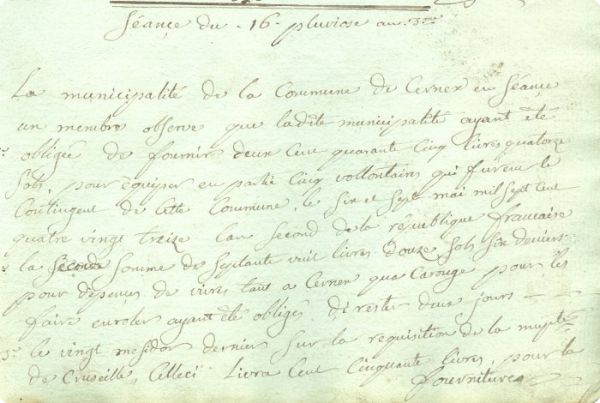 Séance du 16 pluviose an 3me
La municipalité de la Commune de Cernex en Séance
un membre observe que ladite municipalité ayant été
obligée de fournir deux Cent quarante Cinq livres quatorze
Sols, pour équiper en partie Cinq vollontaires qui furent le
Contingent de Cette Commune, le six et Sept mai mil Sept Cent
quatre vingt treize l'an Second de la république francaise
la Seconde Somme de Septante huit livres douze Sols Six deniers
pour dépenses de vivres tant a Cernex qua Carouge pour les
faire enroler ayant été obligés de rester deux jours
3° le vingt messidor dernier Sur la requisition de la
de Cruseilles, Celleci livra Cent Cinquante livres, pour la
fournitures